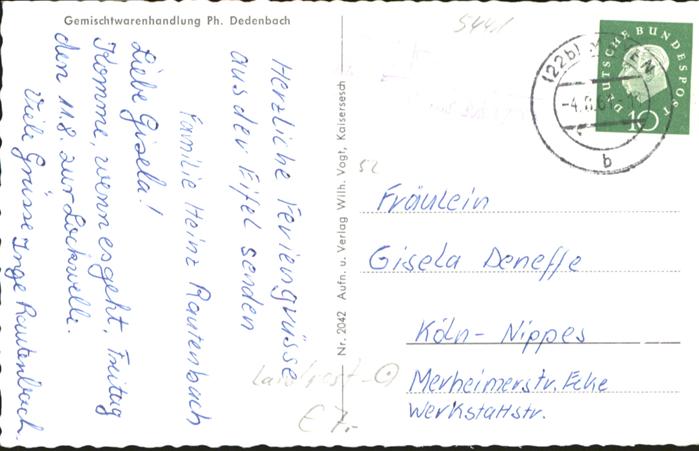 Gemischtwarenhandlung Ph. Dedenbach
Herzliche Feriengrüsse
aus der Eifel senden
Familie Heinz Rautenbach
Liebe Gisela!
Komme, wenn es geht, Freitag
den 11.8. zur Lockwelle.
Viele Grüsse Inge Rautenbach.
Nr. 2042 Aufn. u. Verlag Wilh. Vogt, Kaisersesch
5441
DEUTSCHE BUNDESPOST
10
(22b) M
EN
-4.8.61
b
52
Fräulein
Gisela Deneffe
Köln-Nippes
Merheimerstr. Ecke
Werkstattstr.
Landpost-
€ 7.-